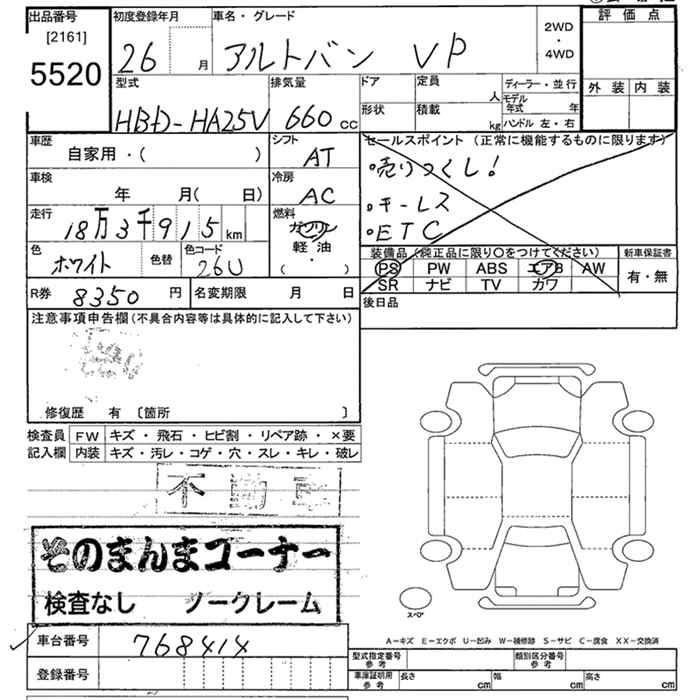 出品番号 初度登録年月 車名・グレード 評価点
[2161] 2WD
5520 26 月 アルトバン VP ・
4WD
型式 排気量 ドア 定員 人 ディーラー・並行 外装 内装
モデル年式 年
HBD-HA25V 660 cc 形状 積載 kg ハンドル 左・右
車歴 シフト セールスポイント (正常に機能するものに限ります)
自家用・( ) AT 売りつくし!
車検 冷房
年 月( 日) AC キーレス
走行 燃料 ETC
18万3千915 km ガソリン
軽・油
( ・ )
色 色替 色コード 装備品(純正品に限り〇をつけてください) 新車保証書
ホワイト 26U PS PW ABS エアB AW 有・無
SR ナビ TV カワ
R券 8350 円 名変期限 月 日 後日品
注意事項申告欄(不具合内容等は具体的に記入して下さい)
修復歴 有 〔箇所 〕
検査員 FW キズ・飛石・ヒビ割・リペア跡・×要
記入欄 内装 キズ・汚レ・コゲ・穴・スレ・キレ・破レ
不動車
そのまんまコーナー
検査なし ノークレーム
スペア
A−キズ E−エクボ U−凹み W−補修跡 S−サビ C−腐食 XX−交換済
車台番号 768414 型式指定番号 参考 類別区分番号 参考
登録番号 車庫証明用 参考 長さ cm 幅 cm 高さ cm